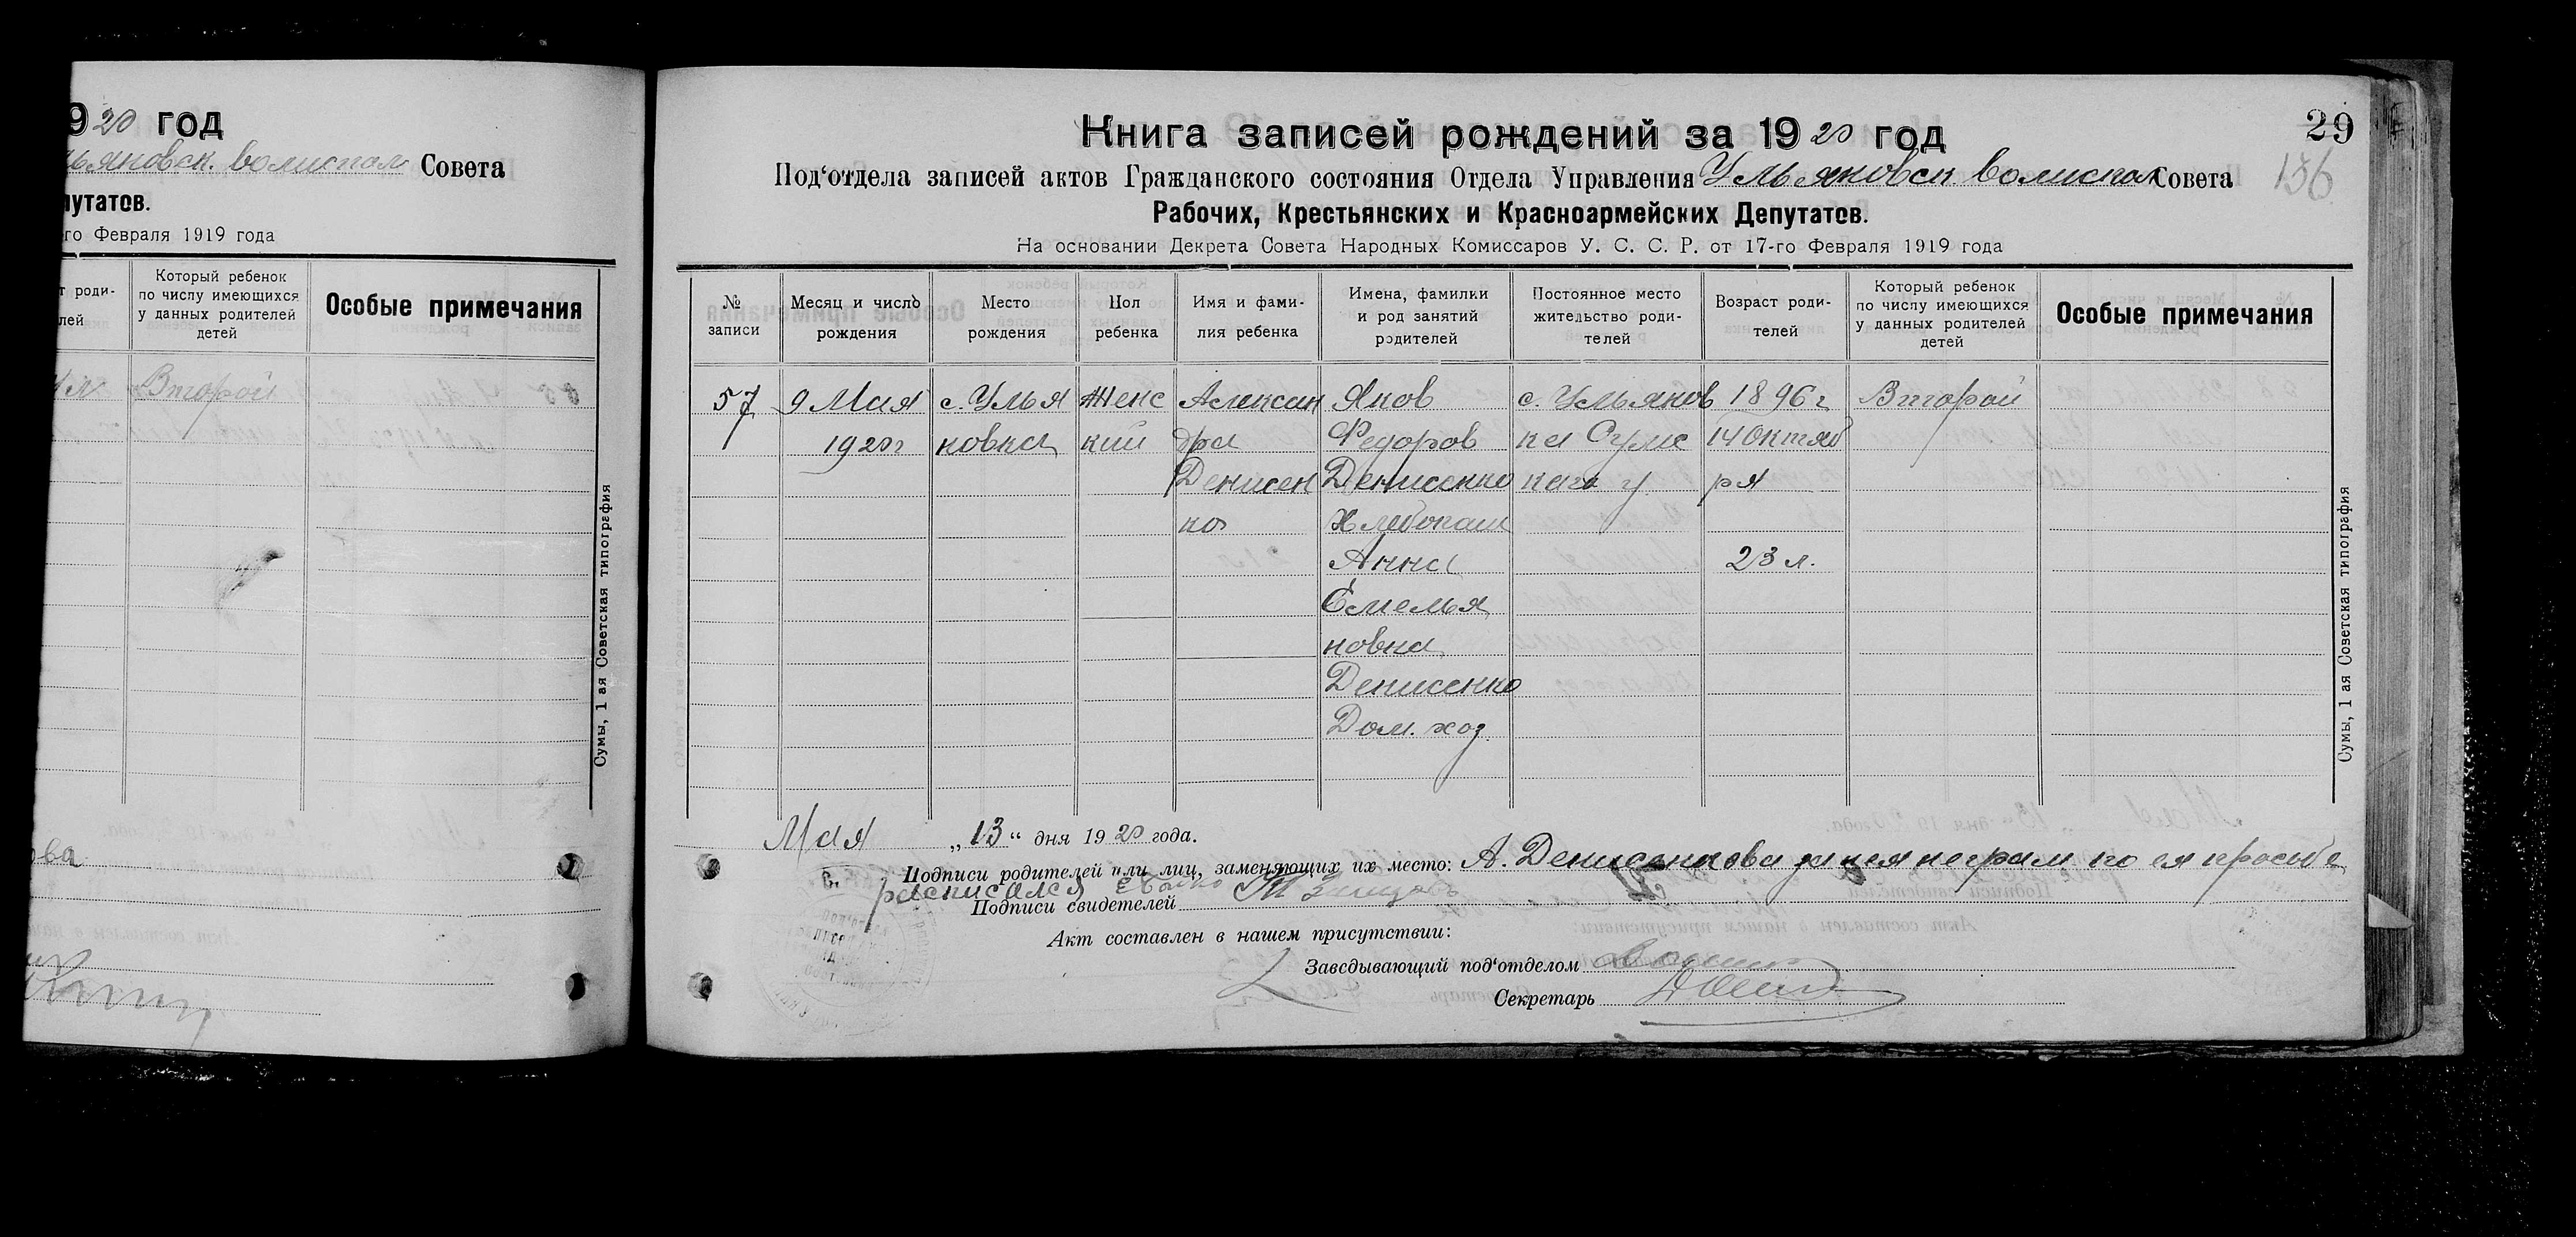 920 год
льяновск. волиспол Совета
путатов.
го Февраля 1919 года
т роди-
лей
Который ребенок
по числу имеющихся
у данных родителей
детей
Особые примечания
Второй
Сумы, 1 ая Советская типография
ова
29
156
Книга записей рождений за 1920 год
Под‘отдела записей актов Гражданского состояния Отдела Управления Ульяновск. волиспол Совета
Рабочих, Крестьянских и Красноармейских Депутатов.
На основании Декрета Совета Народных Комиссаров У. С. С. Р. от 17-го Февраля 1919 года
№
записи
Месяц и число
рождения
Место
рождения
Пол
ребенка
Имя и фами-
лия ребенка
Имена, фамилии
и род занятий
родителей
Постоянное место
жительство роди-
телей
Возраст роди-
телей
Который ребенок
по числу имеющихся
у данных родителей
детей
Особые примечания
57 9 Мая с. Улья Женс Алексан Яков с. Ульянов 1896 г Второй
1920 г новка кий дра Федоров ка Сумс 14 Октяб
Денисен Денисенко каго у ря
ко Хлебопаш
Анна 23 л.
Емелья
новна
Денисенко
Дом. хоз.
Сумы, 1 ая Советская типография
Мая „13“ дня 1920 года.
Подписи родителей или лиц, заменяющих их место: А. Денисенкова за нея неграм по ея просьбе
расписался
Подписи свидетелей
Акт составлен в нашем присутствии:
Заведывающий под‘отделом
Секретарь